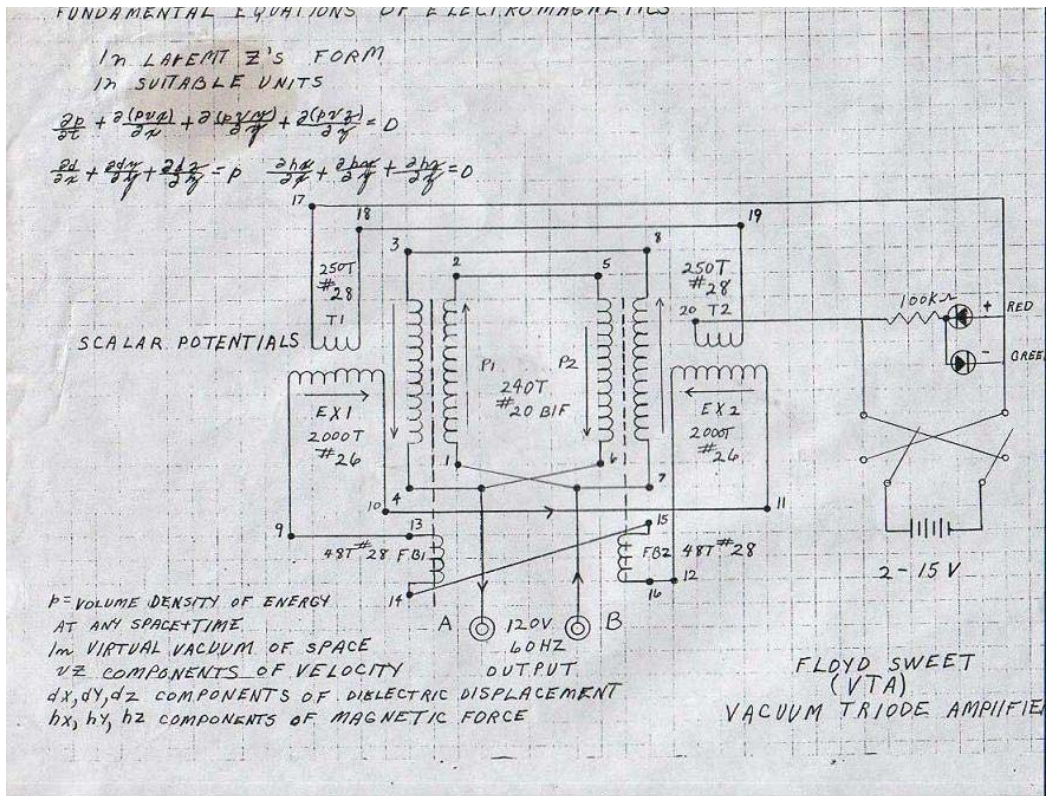 FUNDAMENTAL EQUATIONS OF ELECTROMAGNETICS
In LAFEMT Z'S FORM
In SUITABLE UNITS
∂p/∂t + ∂(pvx)/∂x + ∂(pvy)/∂y + ∂(pvz)/∂z = 0
∂d/∂x + ∂dy/∂y + ∂dz/∂z = p   ∂hx/∂x + ∂hx/∂y + ∂hz/∂z = 0
17
18
19
3
8
2
5
250T
#28
T1
250T
#28
20 T2
100KΩ
+
RED
-
GREE
SCALAR POTENTIALS
P1
P2
240T
#20 BIF
EX1
2000T
#26
EX2
2000T
#26
1
6
4
7
10
11
9
13
15
48T #28 FB1
FB2 48T #28
14
16
12
2-15V
A
120V
60HZ
OUTPUT
B
p = VOLUME DENSITY OF ENERGY
AT ANY SPACE+TIME
In VIRTUAL VACUUM OF SPACE
VZ COMPONENTS OF VELOCITY
dx, dY, dz COMPONENTS OF DIELECTRIC DISPLACEMENT
hx, hY, hz COMPONENTS OF MAGNETIC FORCE
FLOYD SWEET
(VTA)
VACUUM TRIODE AMPlIFIE